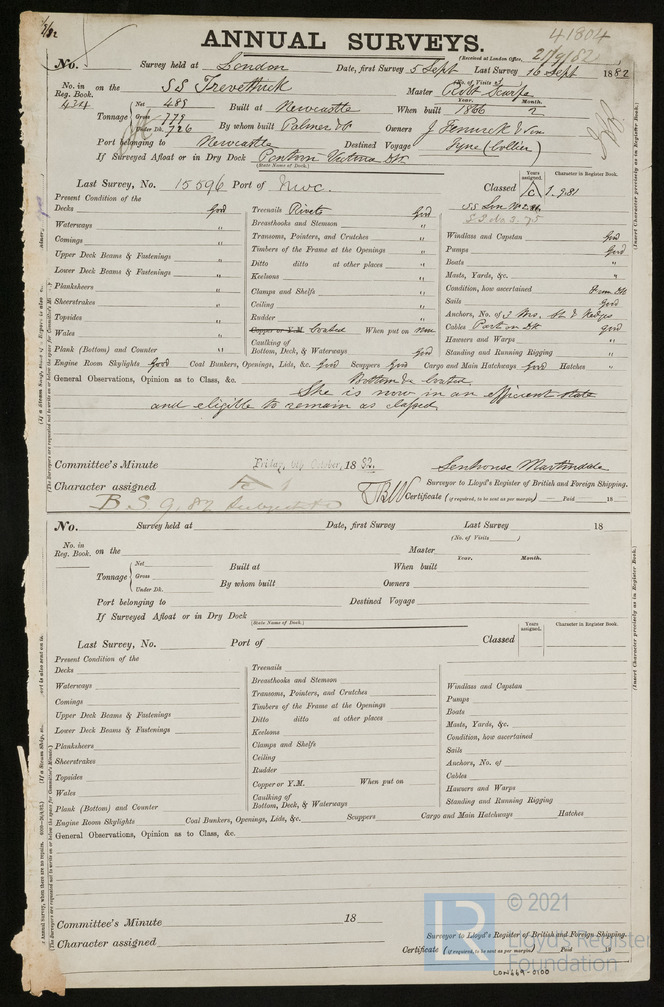 41804
ANNUAL SURVEYS.
(Received at London Office, 21/9/82)
No. Survey held at London Date, first Survey 5 Sept Last Survey 16 Sept 1882
(No. of Visits 3)
No. in Reg. Book. on the SS Trevethick Master Robt
434
Tonnage Net 489 Built at Newcastle When built Year. 1866 Month. 2
Gross 779
Under Dk. 726 By whom built Palmer & Co Owners J Fenwick & Son
Port belonging to Newcastle Destined Voyage Tyne (Collier)
If Surveyed Afloat or in Dry Dock Pontoon Victoria Dk
(State Name of Dock.)
Last Survey, No. 15596 Port of Nwc. Classed Years assigned. Character in Register Book.
Present Condition of the
Decks good Treenails Rivets good
Waterways " Breasthooks and Stemson " Windlass and Capstan good
Comings " Transoms, Pointers, and Crutches " Pumps good
Upper Deck Beams & Fastenings " Timbers of the Frame at the Openings " Boats "
Lower Deck Beams & Fastenings " Ditto ditto at other places " Masts, Yards, &c. "
Planksheers " Keelsons " Condition, how ascertained
Sheerstrakes " Clamps and Shelfs " Sails good
Topsides " Ceiling " Anchors, No. of
Wales " Rudder " Cables Part on Dk good
Plank (Bottom) and Counter " Copper or Y.M. Coated When put on now Hawsers and Warps "
Caulking of Bottom, Deck, & Waterways good Standing and Running Rigging "
Engine Room Skylights Good Coal Bunkers, Openings, Lids, &c. Good Scuppers Good Cargo and Main Hatchways Good Hatches "
General Observations, Opinion as to Class, &c. Bottom coated
She is now in an efficient state
and eligible to remain as classed
Committee's Minute Friday, 6th October, 1882. Senhouse Martindale
Surveyor to Lloyd's Register of British and Foreign Shipping.
Character assigned
Certificate (if required, to be sent as per margin) Paid 18
B.S 9.82
No. Survey held at Date, first Survey Last Survey 18
(No. of Visits )
No. in Reg. Book. on the Master
Tonnage Net Built at When built Year. Month.
Gross
Under Dk. By whom built Owners
Port belonging to Destined Voyage
If Surveyed Afloat or in Dry Dock
(State Name of Dock.)
Last Survey, No. Port of Classed Years assigned. Character in Register Book.
Present Condition of the
Decks Treenails
Waterways Breasthooks and Stemson Windlass and Capstan
Comings Transoms, Pointers, and Crutches Pumps
Upper Deck Beams & Fastenings Timbers of the Frame at the Openings Boats
Lower Deck Beams & Fastenings Ditto ditto at other places Masts, Yards, &c.
Planksheers Keelsons Condition, how ascertained
Sheerstrakes Clamps and Shelfs Sails
Topsides Ceiling Anchors, No. of
Wales Rudder Cables
Plank (Bottom) and Counter Copper or Y.M. When put on Hawsers and Warps
Caulking of Bottom, Deck, & Waterways Standing and Running Rigging
Engine Room Skylights Coal Bunkers, Openings, Lids, &c. Scuppers Cargo and Main Hatchways Hatches
General Observations, Opinion as to Class, &c.
Committee's Minute 18
Surveyor to Lloyd's Register of British and Foreign Shipping.
Character assigned
Certificate (if required, to be sent as per margin) Paid 18
(Insert Character precisely as in Register Book.)
(Insert Character precisely as in Register Book.)
LR © 2021
Lloyd's Register
Foundation
LON669-0100